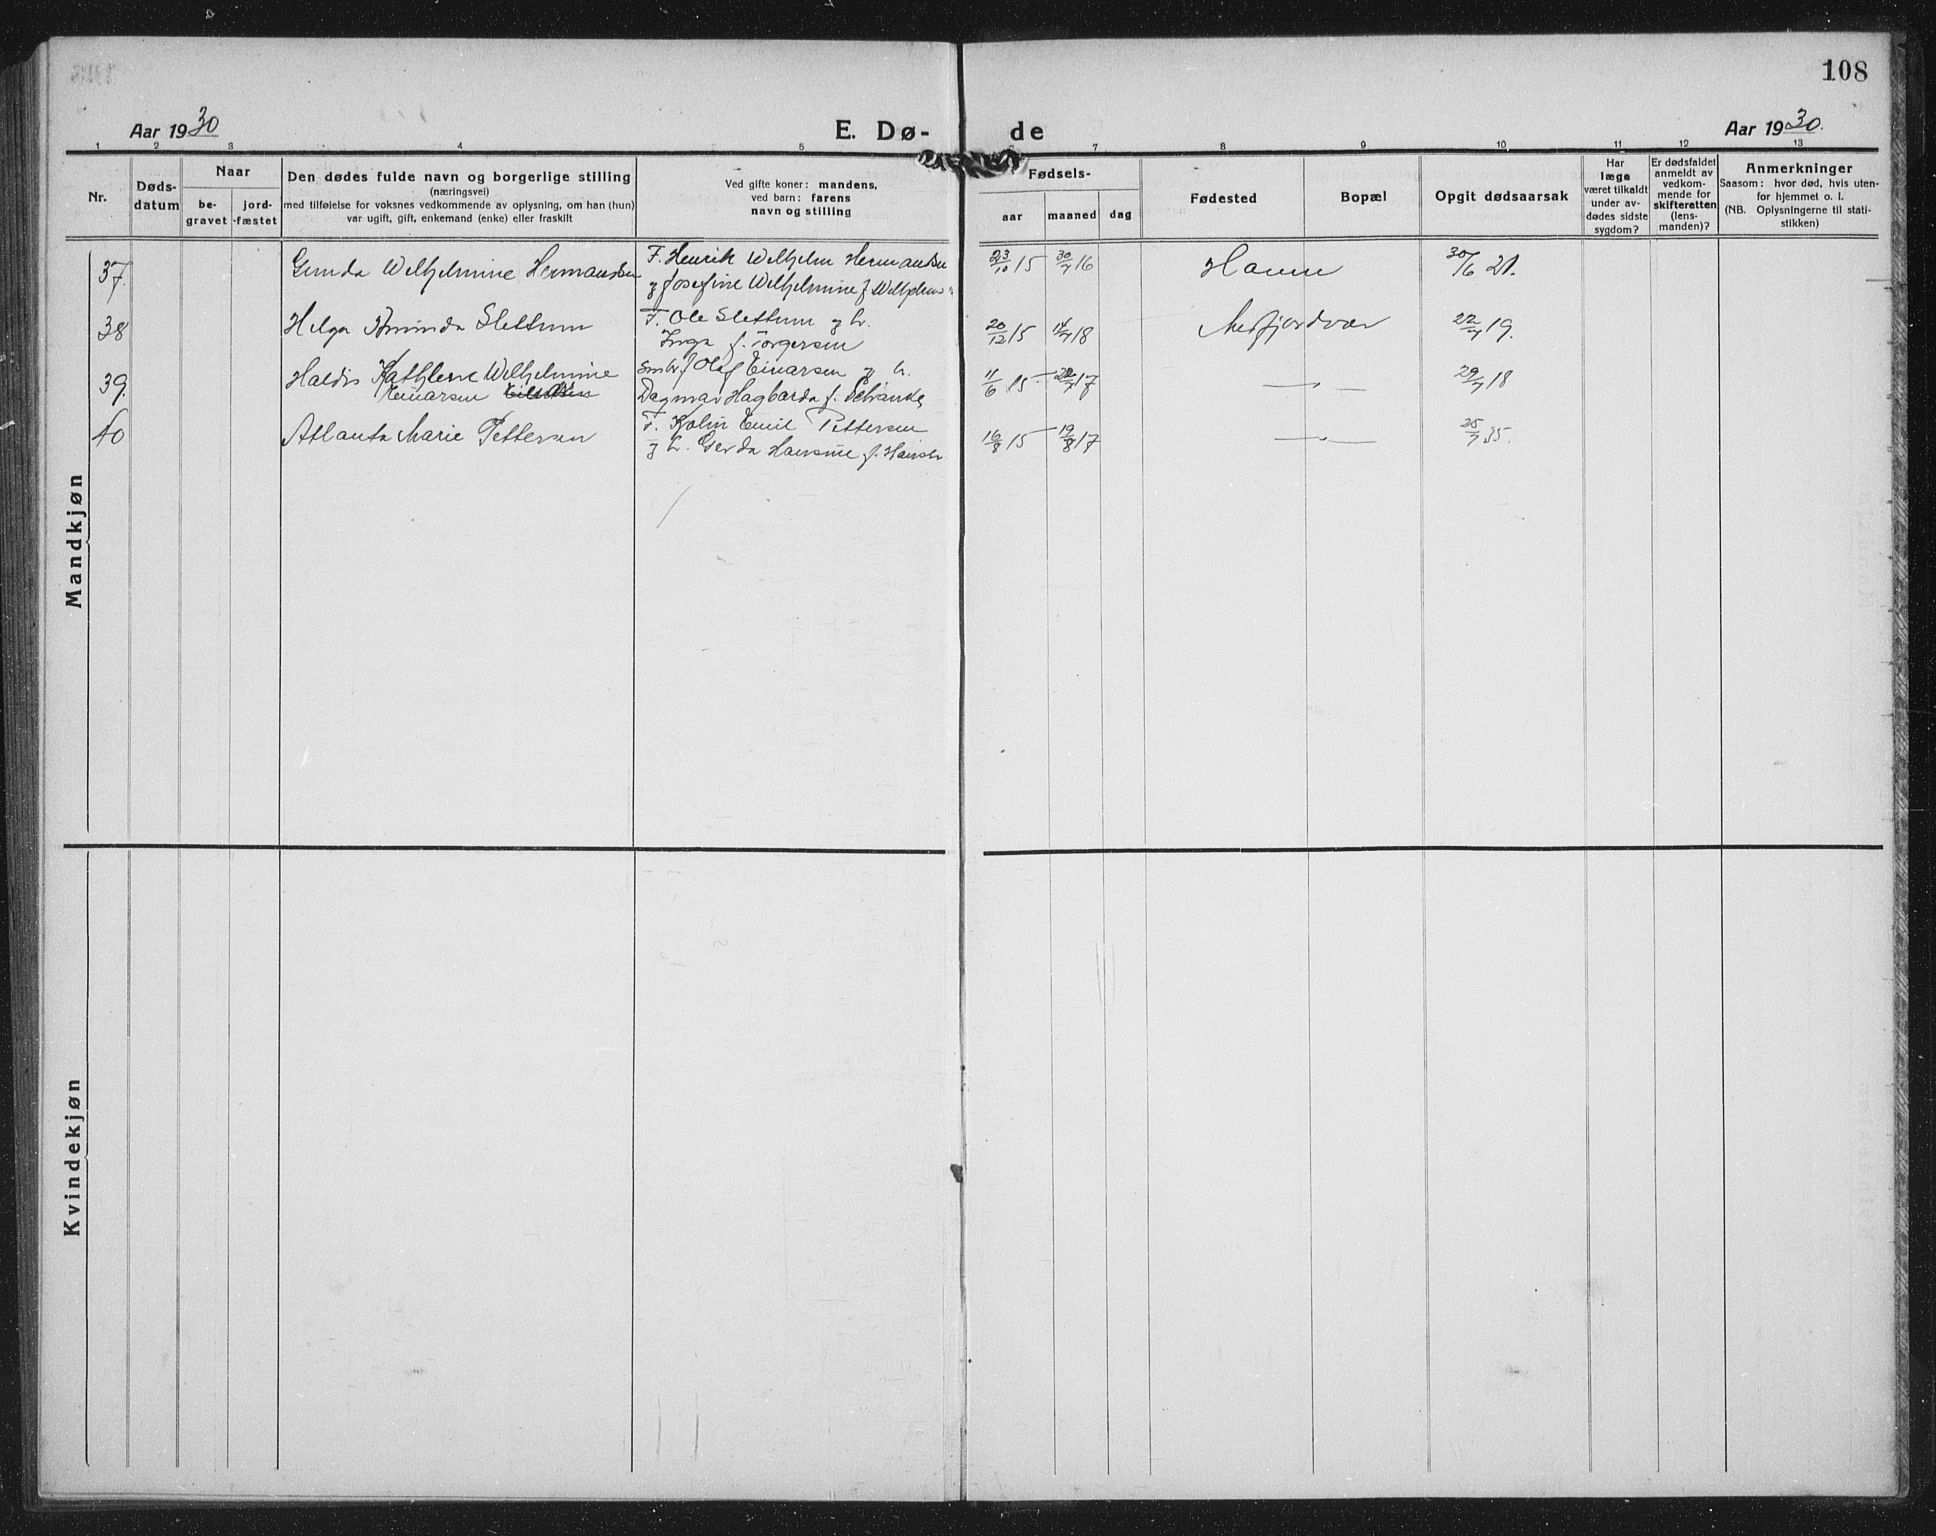 108
Aar 1930
E. Dø-
de
Aar 1930.
1 2 3 4 5 7 8 9 10 11 12 13
Nr.
Døds-
datum
Naar
be-
gravet
jord-
fæstet
Den dødes fulde navn og borgerlige stilling
(næringsvei)
med tilføielse for voksnes vedkommende av oplysning, om han (hun)
var ugift, gift, enkemand (enke) eller fraskilt
Ved gifte koner: mandens,
ved barn: farens
navn og stilling
Fødsels-
aar
maaned
dag
Fødested
Bopæl
Opgit dødsaarsak
Har
læge
været tilkaldt
under av-
dødes sidste
sygdom?
Er dødsfaldet
anmeldt av
vedkom-
mende for
skifteretten
(lens-
manden)?
Anmerkninger
Saasom: hvor død, hvis uten-
for hjemmet o. l.
(NB. Oplysningerne til stati-
stikken)
37. Gunda Wilhelmine Hermansen
F. Henrik Wilhelm Hermansen
g Josefine Wilhelmine f
23/10 15 30/7 16 Havn 30/6 21.
38 Helga Slettum
F. Ole Slettum g h.
Inga f. Torgersen
20/12 15 14/7 18 Mefjordvær 22/7 19.
39. Haldis Kathlene Wilhelmine
Einarsen
Smbr. f Olaf Einarsen g h.
Dagmar Hagbarda f.
11/6 15 17 — " — 29/7 18
40 Atlanta Marie Pettersen
F. Kolin Emil Pettersen
g h. Gerda Hansine f. Hansen
16/8 15 19/8 17 — " — 25/7 35.
Mandkjøn
Kvindekjøn